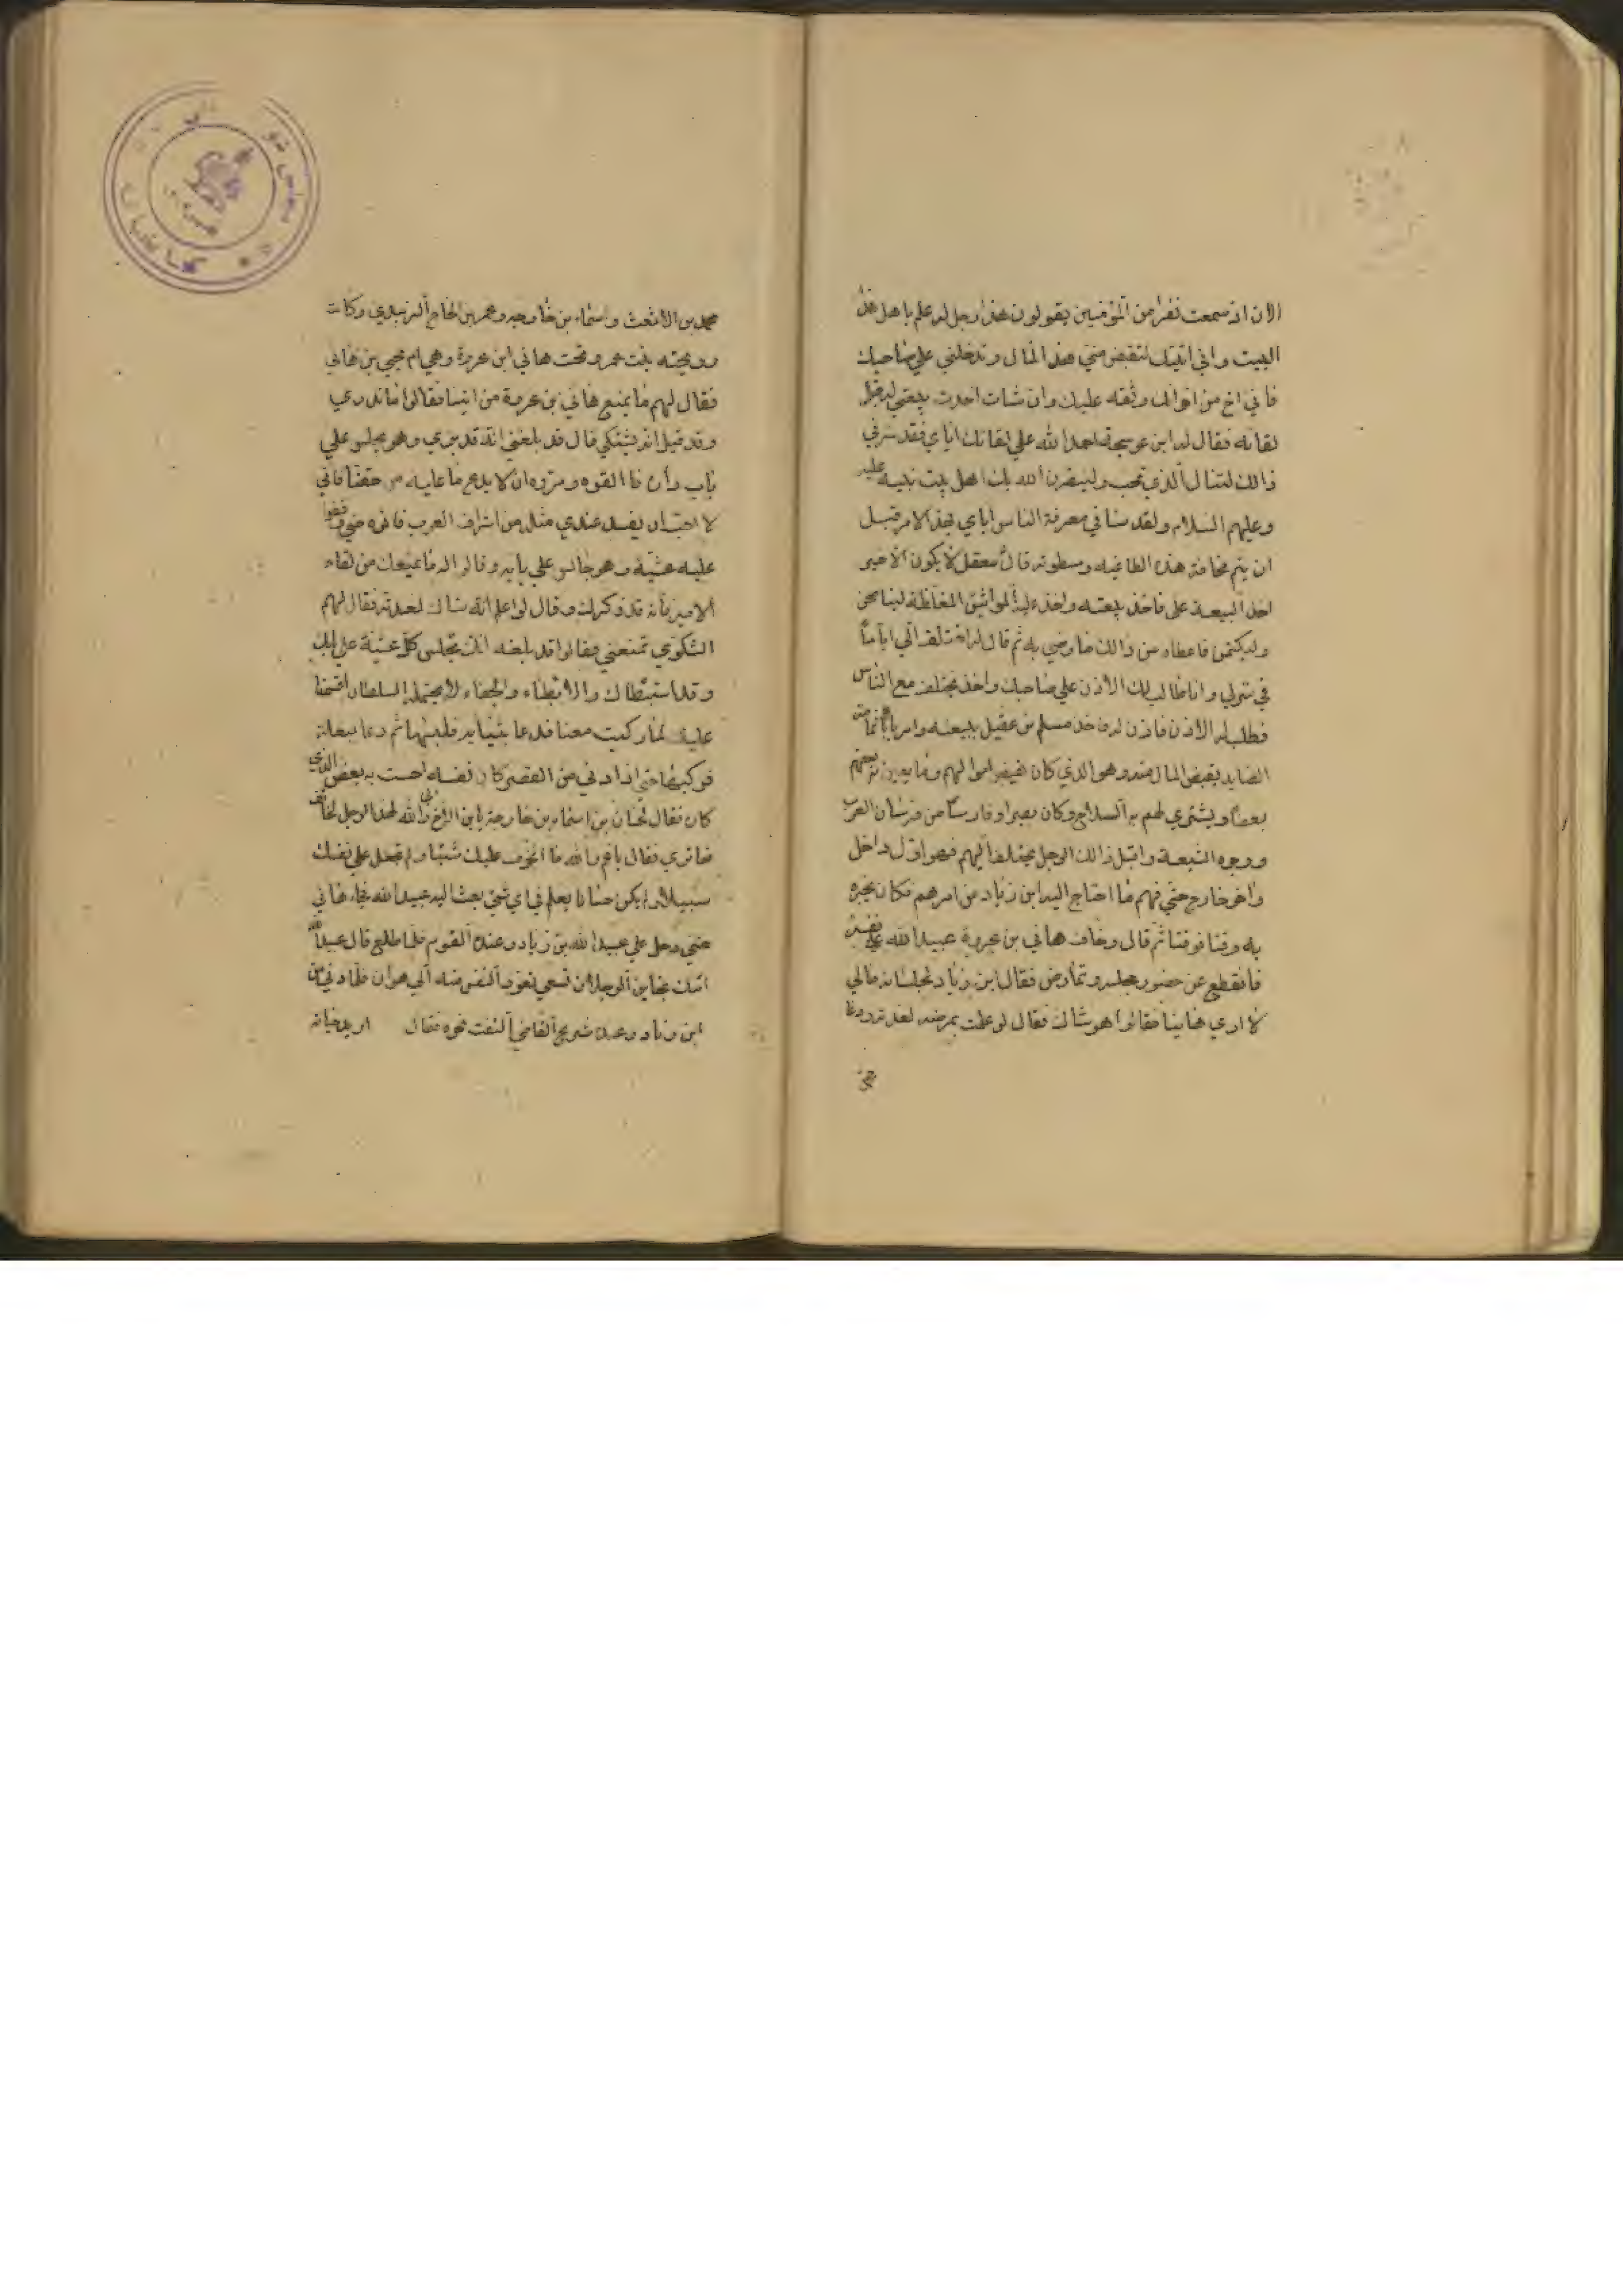 الان اذ سمعت نفرا من المؤمنين يقولون هذا رجل له علم باهل هذا
البيت واني اتيتك لتقبض مني هذا المال وتدخلني علي صاحبك
فاني اخ من اخوانك وثقه عليك وان شات اخذت بيعتي له قبل
لقائه فقال له ابن عوسجة احمد الله علي لقائك اياي فقد سرني
ذالك لتنال الذي تحب ولينصرن الله بك اهل بيت نبيه عليه
وعليهم السلام ولقد سائني معرفة الناس اياي بهذا الامر قبل
ان يتم مخافة هذه الطاغيه وسطوته قال معقل لا يكون الا خير
اخذ البيعة علي فاخذ بيعته واخذ عليه المواثيق المغلظة ليناصحن
وليكتمن فاعطاه من ذالك ما رضي به ثم قال له اختلف الي اياما
في منزلي وانا طالب لك الاذن علي صاحبك واخذ يختلف مع الناس
فطلب له الاذن فاذن له فاخذ مسلم بن عقيل بيعته وامر ابا ثمامة
الصايد بقبض المال منه وهو الذي كان يقبض اموالهم وما يعين به بعضهم
بعضا ويشتري لهم به السلاح وكان بصيرا وفارسا من فرسان العرب
ووجوه الشيعة واقبل ذالك الرجل يختلف اليهم فهو اول داخل
واخر خارج حتي فهم ما احتاج اليه ابن زياد من امرهم فكان يخبره
به وقتا فوقتا ثم قال وخاف هاني بن عروة عبيد الله علي نفسه
فانقطع عن حضور مجلسه وتمارض فقال ابن زياد لجلسائه مالي
لا اري هانيا فقالوا هو شاك فقال لو علمت بمرضه لعدته ودعا
محمد بن الاشعث واسماء بن خارجه وعمر بن الحاج الزبيدي وكانت
رويحته بنت عمرو تحت هاني ابن عروة وهي ام يحيي بن هاني
فقال لهم ما يمنع هاني بن عروة من اتيننا فقالوا ما ندري
وقد قيل انه يشتكي قال قد بلغني انه قد بري وهو يجلس علي
باب داره فالقوه ومروه ان لا يدع ما عليه من حقنا فاني
لا احب ان يفسد عندي مثله من اشراف العرب فاتوه حتي وقفوا
عليه عشية وهو جالس علي بابه وقالوا له ما يمنعك من لقاء
الامير فانه قد ذكرك وقال لو اعلم انه شاك لعدته فقال لهم
الشكوي تمنعني فقالوا قد بلغه انك تجلس كل عشية علي بابك
وقد استبطاك والابطاء والجفاء لا يحتمله السلطان اقسمنا
عليك لما ركبت معنا فدعا بثيابه فلبسها ثم دعا ببغلة
فركبها حتي اذا دني من القصر كان نفسه احست به بعض الذي
كان فقال لحسان بن اسماء بن خارجة يابن الاخ اني والله لهذا الرجل لخائف
فما تري فقال ياعم والله ما اتخوف عليك شيئا ولم تجعل علي نفسك
سبيلا ولم يكن حسان يعلم في اي شي بعث اليه عبيد الله فجاء هاني
حتي دخل علي عبيد الله بن زياد وعنده القوم فلما طلع قال عبيد الله
اتتك بخاين الرجلان تسعي
ابن زياد وعنده شريح القاضي التفت نحوه فقال اريد حياته